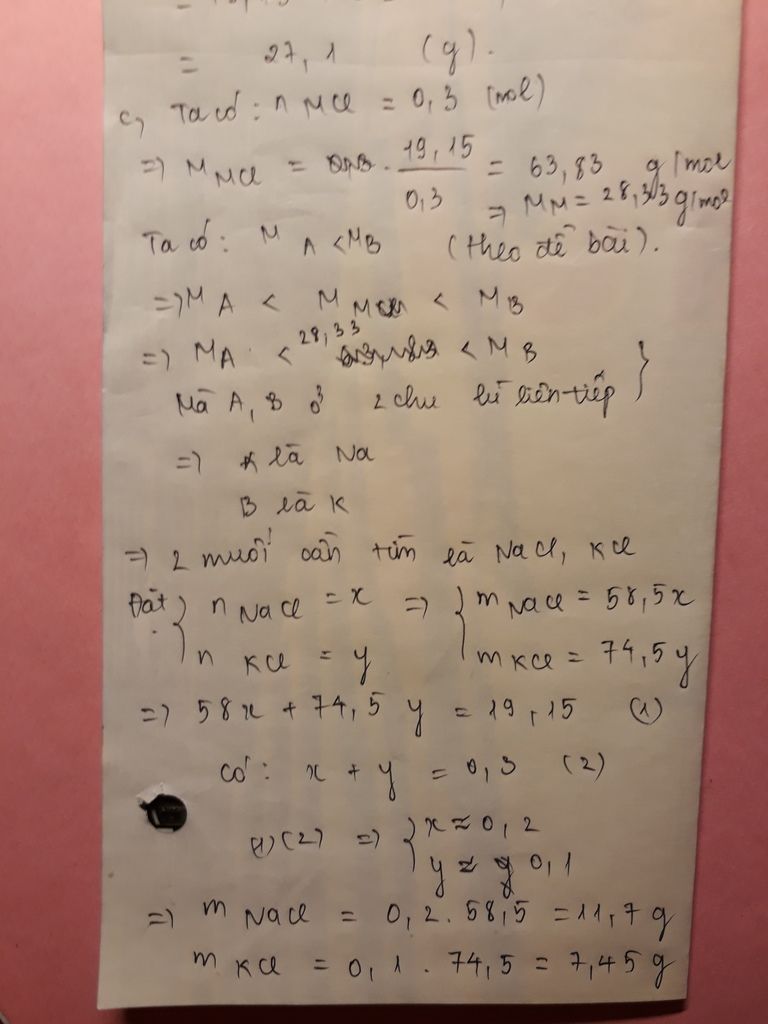 = 27,1 (g).
c, Ta có : n MCl = 0,3 (mol)
=> M MCl = . 19,15 / 0,3 = 63,83 g/mol
=> MM = 28,33 g/mol
Ta có : M A < MB (theo đề bài).
=> M A < M M < M B
=> MA < 28,33 < M B
Mà A, B ở 2 chu kì liên tiếp }
=> A là Na
B là K
=> 2 muối cần tìm là NaCl, KCl
Đặt { n NaCl = x => { m NaCl = 58,5x
n KCl = y m KCl = 74,5y
=> 58x + 74,5 y = 19,15 (1)
Có : x + y = 0,3 (2)
(1) (2) => { x ≈ 0,2
y ≈ 0,1
=> m NaCl = 0,2 . 58,5 = 11,7 g
m KCl = 0,1 . 74,5 = 7,45 g